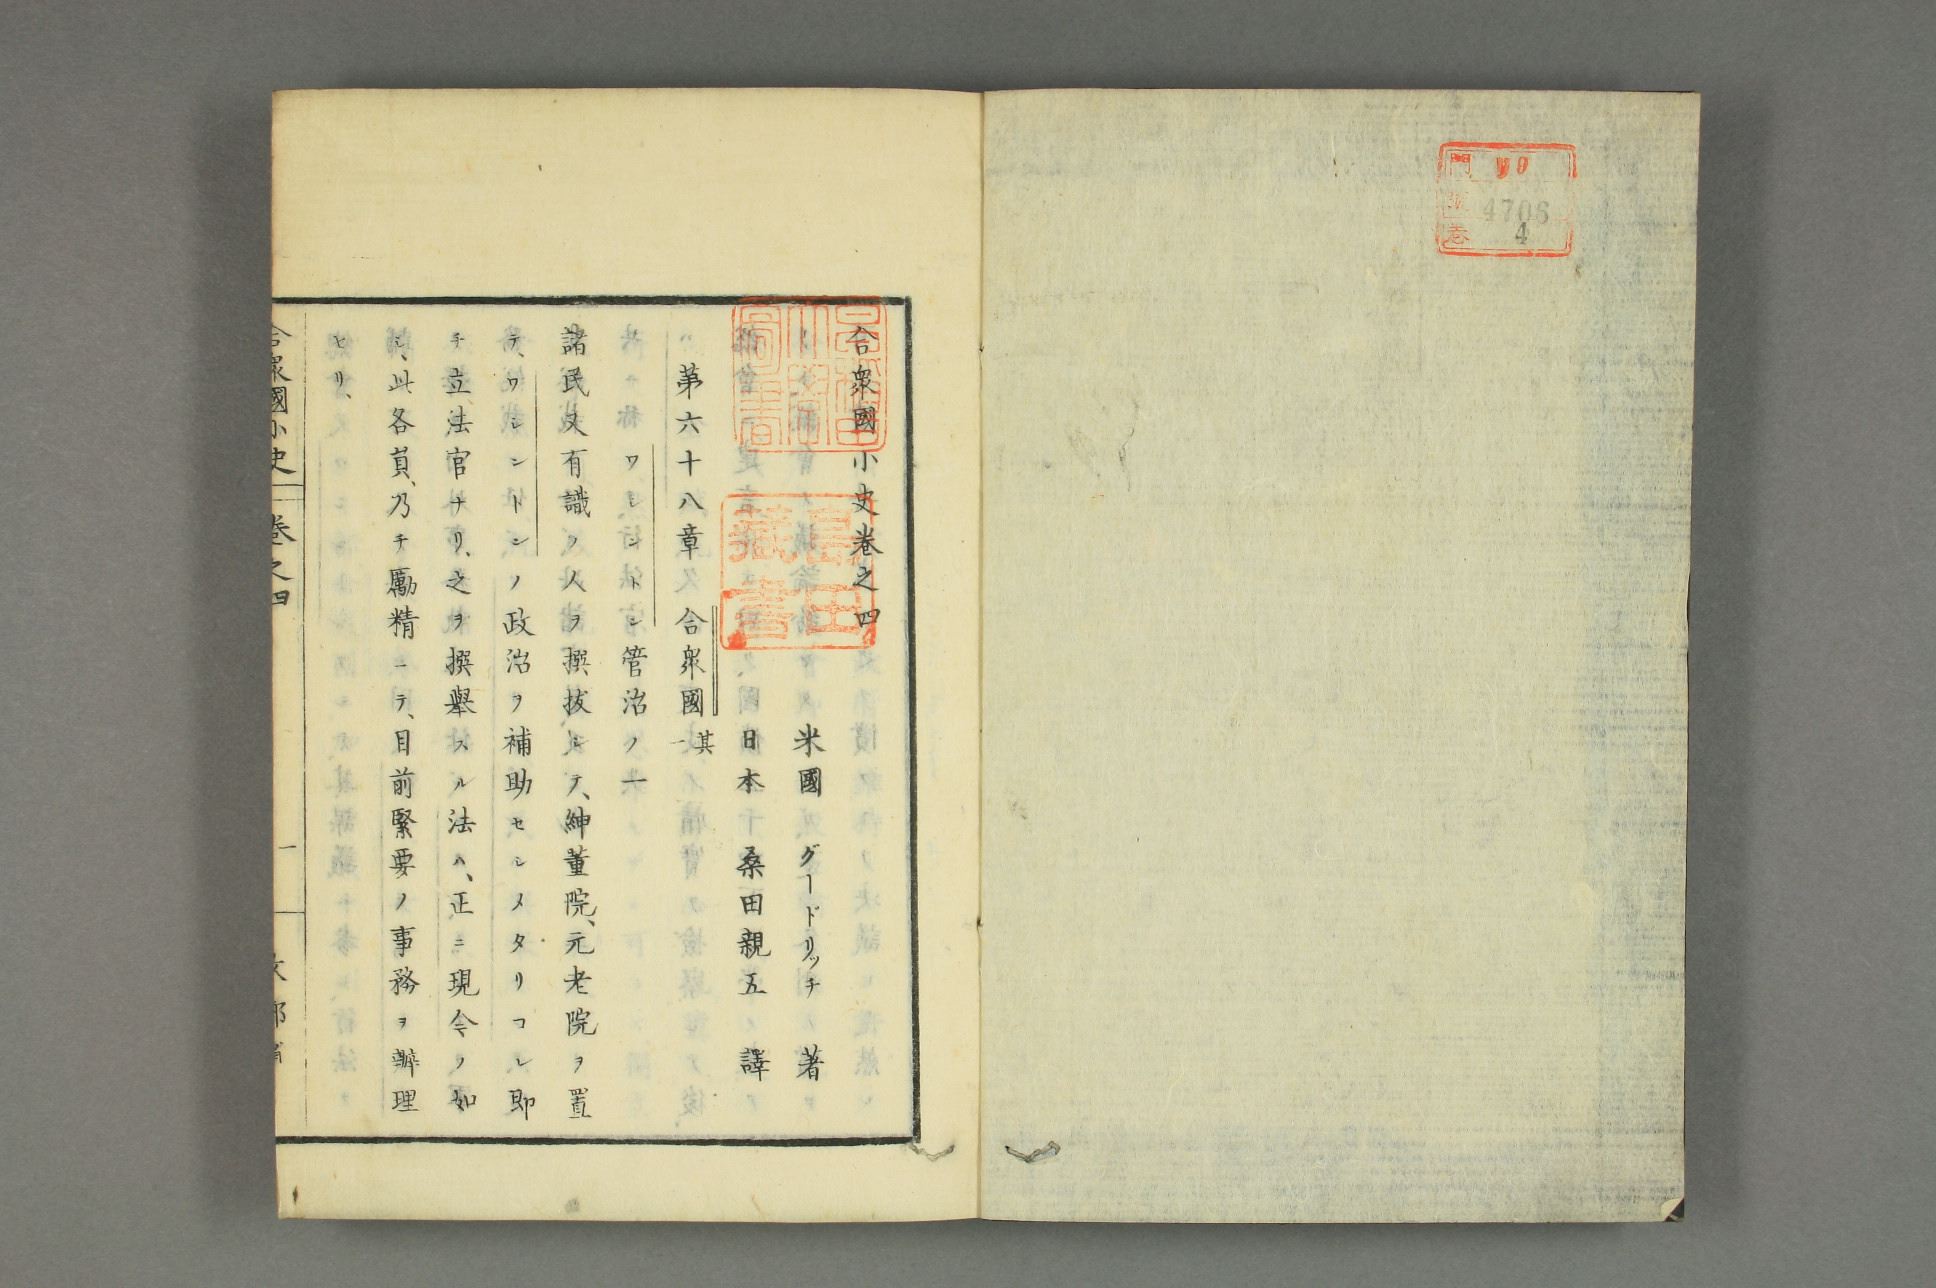 門 99
4706
巻 4
合衆國小史卷之四
米國 グードリッチ 著
日本 桑田親五 譯
第六十八章 合衆國 其一
ワシントン管治ノ一
諸民又有識ノ人ヲ撰拔シテ、紳董院、元老院ヲ置
テ、ワシントンノ政治ヲ補助セシメタリコレ即
チ立法官ナリ、之ヲ撰擧スル法ハ、正ニ現今ノ如
シ、此各員、乃チ勵精ニテ、目前緊要ノ事務ヲ辦理
セリ、
合衆國小史 卷之四 一 文部省